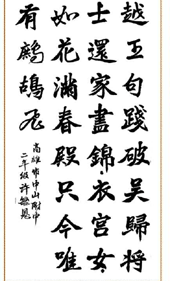 越王句踐破吳歸將
士還家盡錦衣宮女
如花滿春殿只今唯
有鷓鴣飛
高雄市中山附中
二年級許